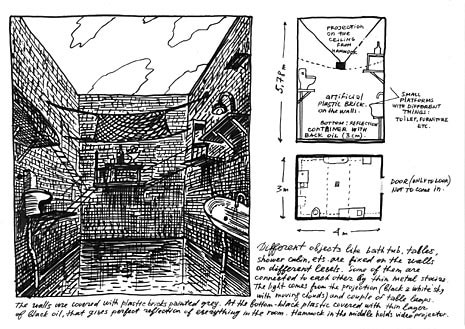 PROJECTION
ON THE
CEILING
FROM
HAMMOCK
5,78 m
artificial
plastic brick.
on the walls.
BOTTOM: REFLECTION
CONTAINER WITH
BACK OIL (3 cm).
SMALL
PLATFORMS
WITH DIFFERENT
THINGS:
TOILET, FURNITURE
ETC.
3 m
4 m
DOOR (ONLY TO LOOK)
NOT TO COME IN.
Different objects like bath tub, tables,
shower cabin, ets. are fixed on the walls
on different levels. Some of them are
connected to each other by thin metal staires
The light comes from the projection (black & white sky
with moving clouds) and couple of table lamps.
The walls are covered with plastic bricks painted grey. At the bottom-black plastic covered with thin layer
of Black oil, that gives perfect reflection of everything in the room. Hammock in the middle holds video projector.